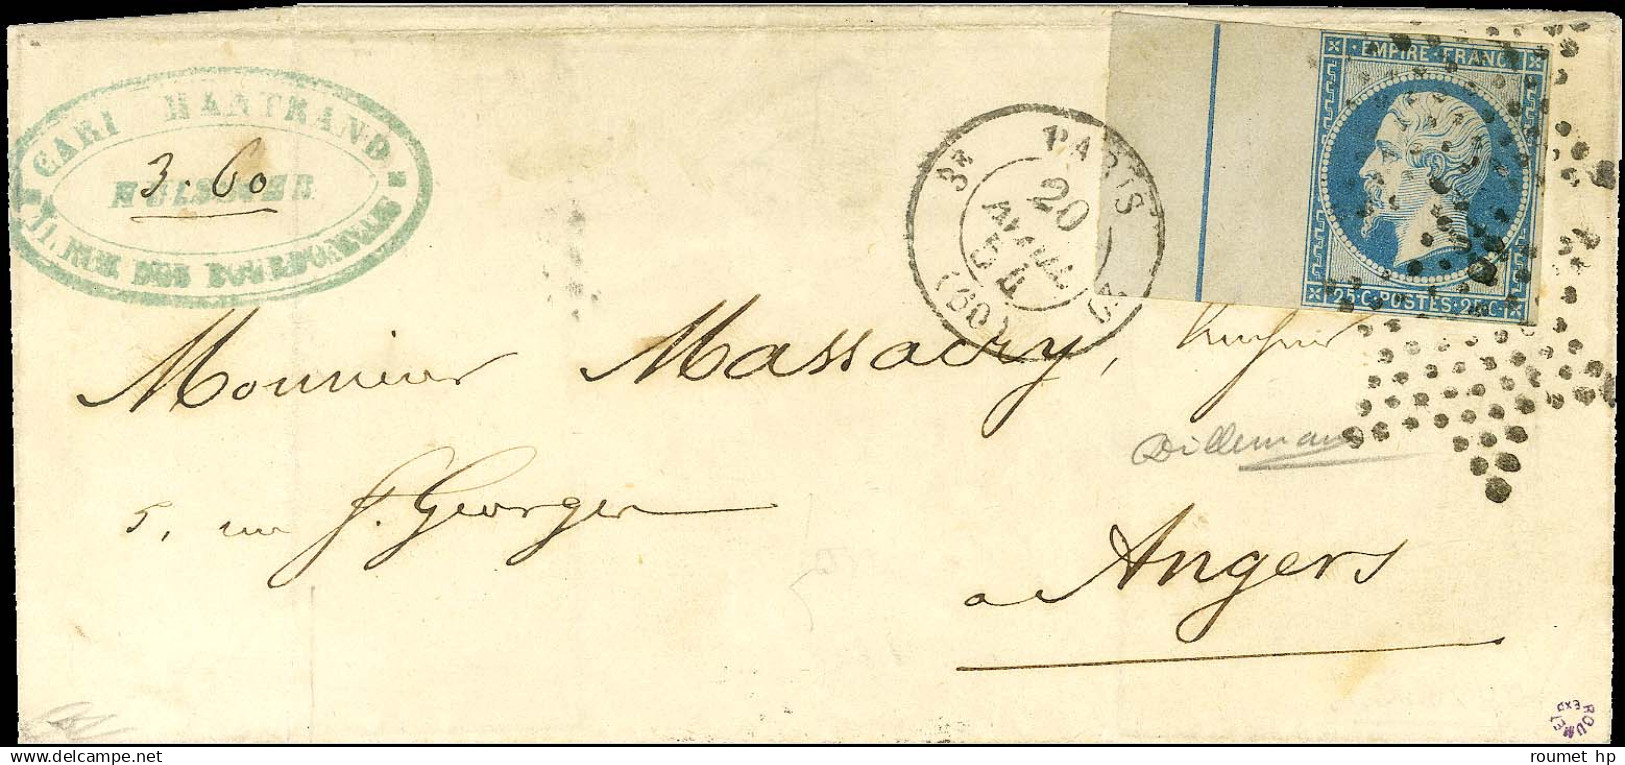 CARI MANTRAND
HUISSIER
11, RUE DES BOURDONNAIS
3.60
PARIS
3E
20
AVRIL
54
(60)
EMPIRE · FRANC
25·C·POSTES·25·C·
Monsieur Massacry, huissier
5, rue St. Georges
Dillemann
à Angers
ROUMET
EXP
roumet hp